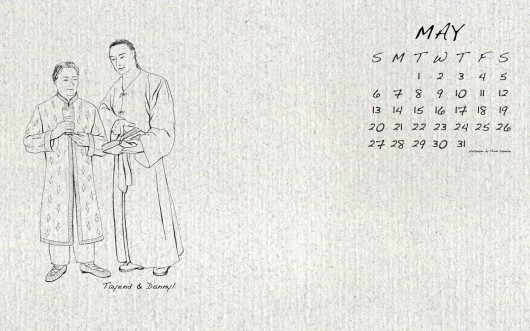 MAY
S M T W T F S
1 2 3 4 5
6 7 8 9 10 11 12
13 14 15 16 17 18 19
20 21 22 23 24 25 26
27 28 29 30 31
Tayend & Dannyl